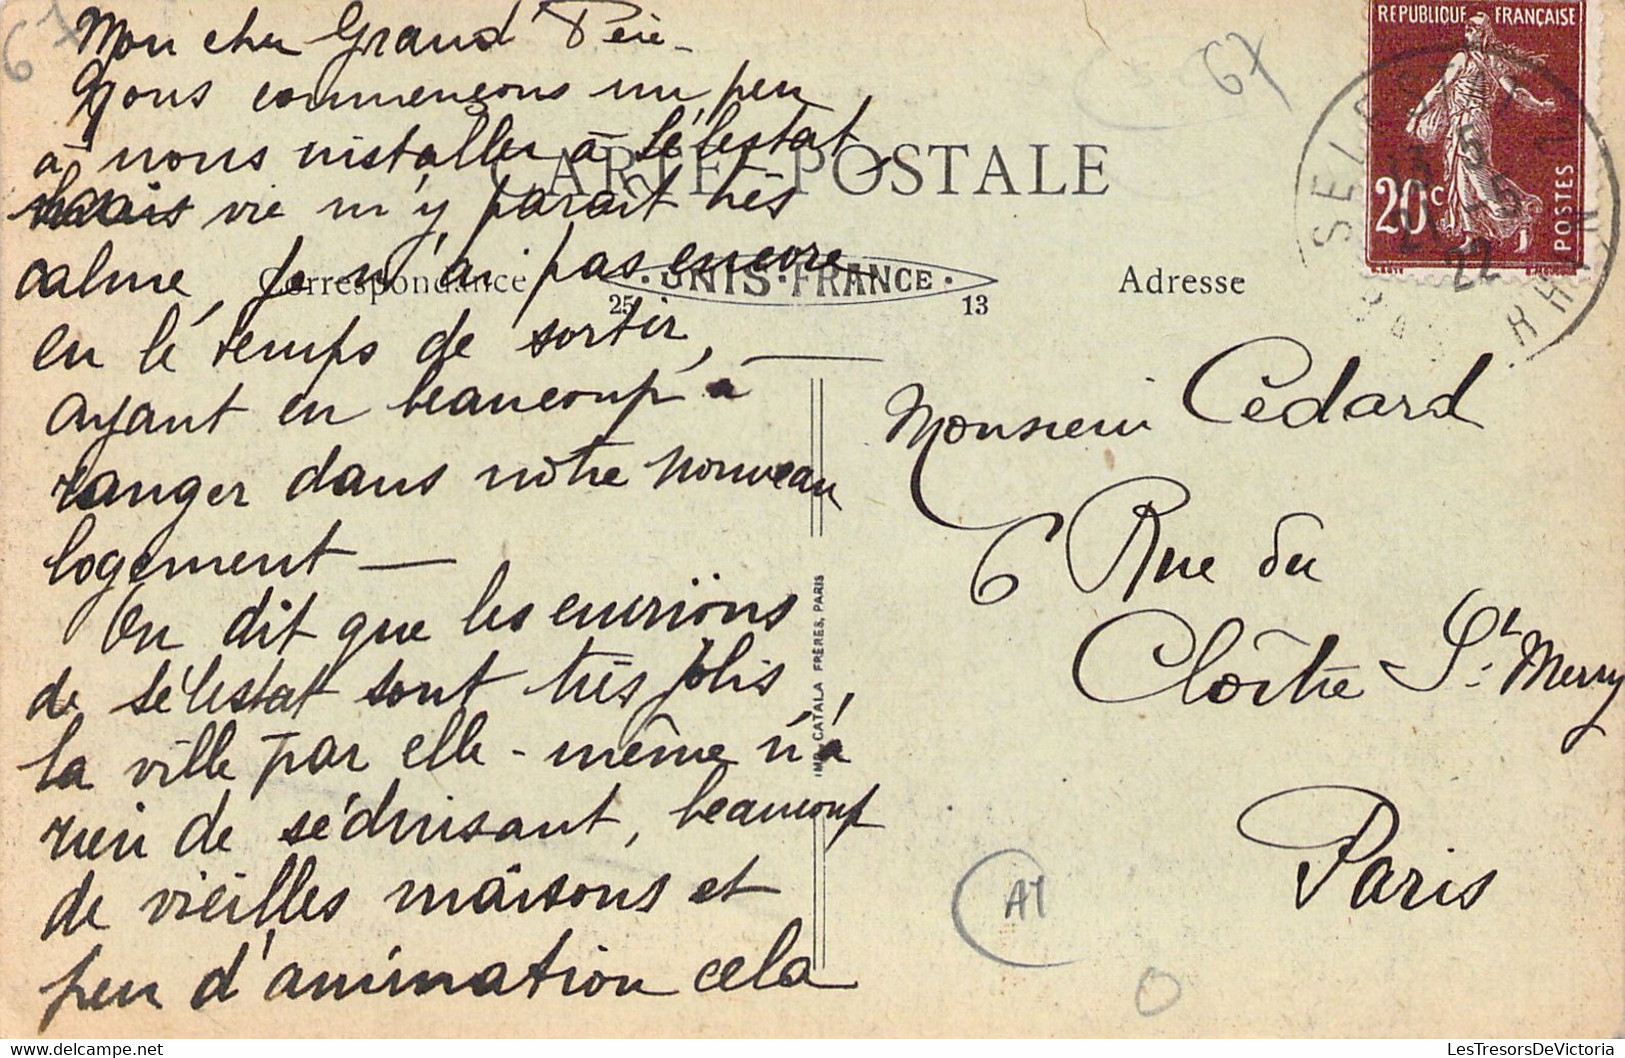 67
Mon cher Grand Père -
Nous commençons un peu
à nous installer à Sélestat,
mais vie m'y parait très
calme, je n'ai pas encore
eu le temps de sortir,
ayant eu beaucoup à
ranger dans notre nouveau
logement —
On dit que les environs
de Sélestat sont très jolis,
la ville par elle-même n'a
rien de séduisant, beaucoup
de vieilles maisons et
peu d'animation cela
CARTE POSTALE
Correspondance
UNIS-FRANCE
25 13
Adresse
IMP. CATALA FRÈRES, PARIS
67
REPUBLIQUE FRANÇAISE
20c
POSTES
22
RHIN
Monsieur Cédard
6 Rue du
Cloître St. Merry
Paris
A1
LesTresorsDeVictoria